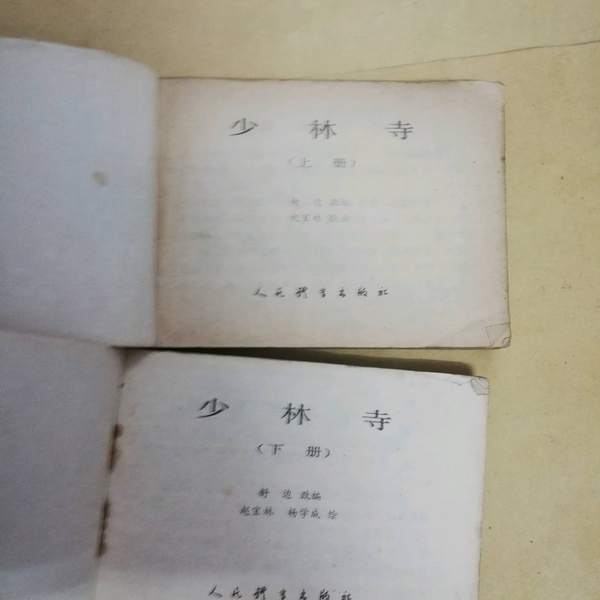 少林寺
（上册）
改编
赵宝林
人民体育出版社
少林寺
（下册）
舒边 改编
赵宝林 杨学成 绘
人民体育出版社